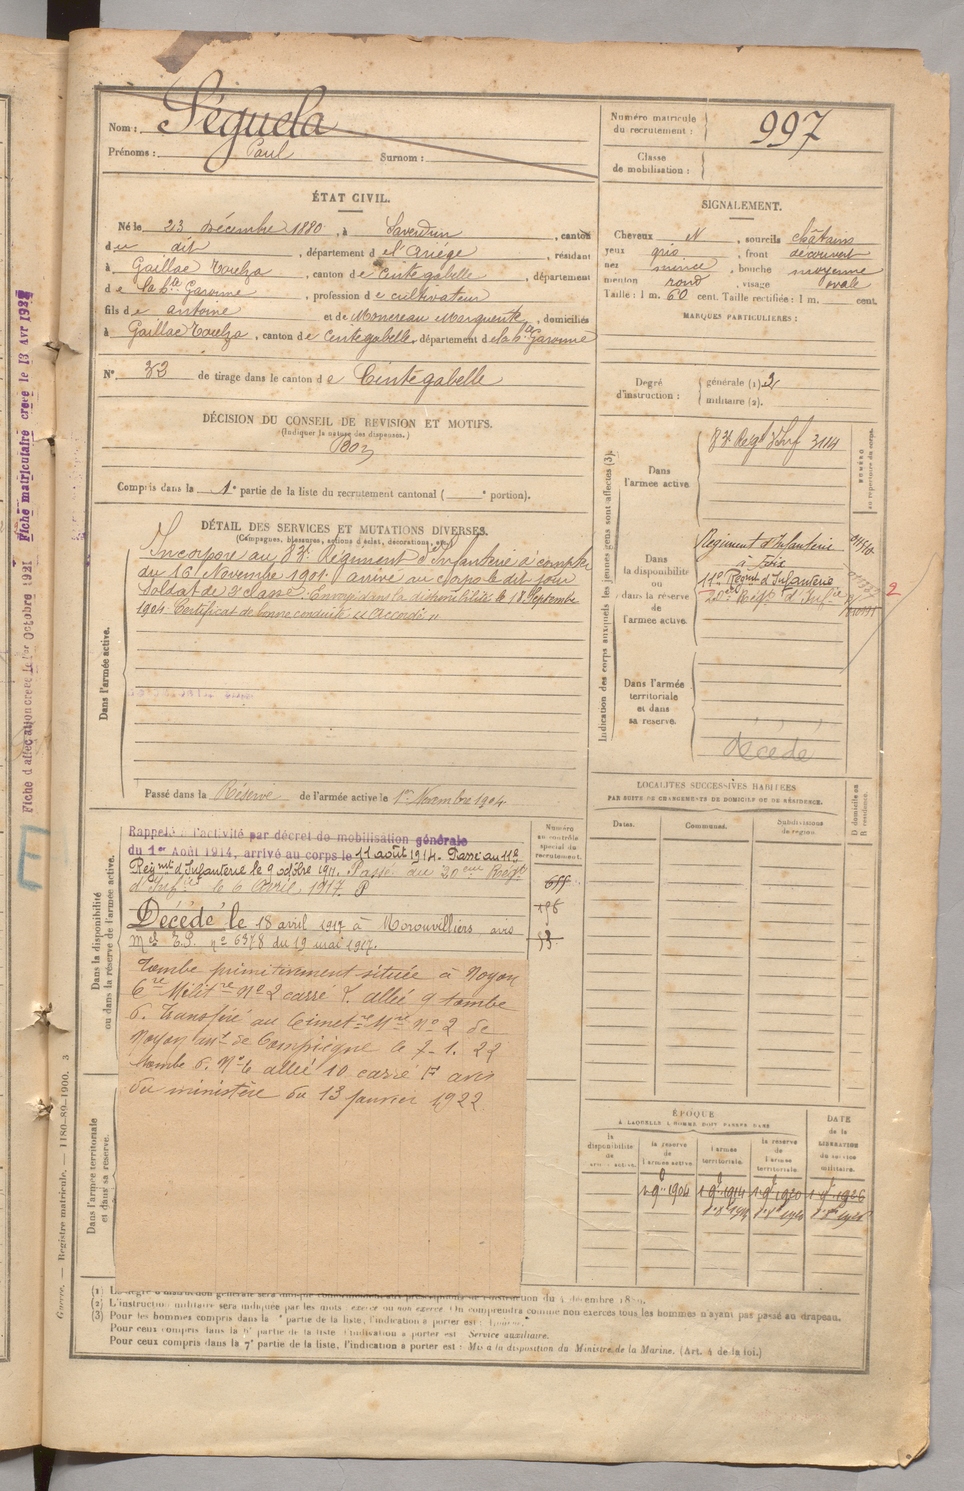 Nom : Séguela
Prénoms : Paul Surnom :
Numéro matricule du recrutement : 997
Classe de mobilisation :
ÉTAT CIVIL.
Né le 23 Décembre 1880, à Saverdun, canton
du dit, département de l'Ariège, résidant
à Gaillac Toulza, canton de Cintegabelle, département
de la hte Garonne, profession de cultivateur
fils de Antoine et de Monereau Marguerite, domiciliés
à Gaillac Toulza, canton de Cintegabelle, département de la hte Garonne
N° 33 de tirage dans le canton de Cintegabelle
DÉCISION DU CONSEIL DE REVISION ET MOTIFS.
(Indiquer la nature des dispenses.)
Bon
Compris dans la 1e partie de la liste du recrutement cantonal ( e portion).
SIGNALEMENT.
Cheveux N, sourcils châtains
yeux gris, front découvert
nez mince, bouche moyenne
menton rond, visage ovale
Taille : 1 m. 60 cent. Taille rectifiée : 1 m. cent.
MARQUES PARTICULIÈRES :
Degré d'instruction : générale (1) 3
militaire (2).
DÉTAIL DES SERVICES ET MUTATIONS DIVERSES.
(Campagnes, blessures, actions d'éclat, décorations, etc.)
Dans l'armée active.
Incorporé au 83e Régiment d'Infanterie à compter
du 16 Novembre 1901. arrivé au corps le dit jour
Soldat de 2e classe. Envoyé dans la disponibilité le 18 Septembre
1904. Certificat de bonne conduite "Accordé"
Passé dans la Réserve de l'armée active le 1er Novembre 1904
Indication des corps auxquels les jeunes gens sont affectés (3).
Dans l'armée active
83e Régt d'Inf 3114
NUMÉRO au répertoire du corps.
Dans la disponibilité ou dans la réserve de l'armée active.
Régiment d'Infanterie
à Foix
11e Régimt d'Infanterie
20e Régt d'Infie
2
Dans l'armée territoriale et dans sa reserve.
décédé
LOCALITÉS SUCCESSIVES HABITÉES
PAR SUITE DE CHANGEMENTS DE DOMICILE OU DE RÉSIDENCE.
Dates.
Communes.
Subdivisions de région.
D domicile ou R résidence.
Dans la disponibilité ou dans la réserve de l'armée active.
Numéro au contrôle spécial du recrutement.
Rappelé à l'activité par décret de mobilisation générale
du 1er Août 1914, arrivé au corps le 11 août 1914. Passé au 11e
Régimt d'Infanterie le 9 octobre 1914. Passé au 20eme Régt
d'Infie le 6 Avril 1917. P
Décédé le 18 avril 1917 à Moronvilliers, avis
Mel E.P. n° 6378 du 19 mai 1917.
Tombe primitivement située à Noyon
Cre Militre N° 2 carré F. allée 9 tombe
6. Transféré au Cimetre Mre N° 2 de
Noyon art de Compiègne le 7-1. 22
tombe 6. N° 6 allée 10 carré F avis
du ministère du 13 Janvier 1922
Dans l'armée territoriale et dans sa reserve.
ÉPOQUE
À LAQUELLE L'HOMME DOIT PASSER DANS
la disponibilité de l'armée active.
la reserve de l'armée active.
l'armée territoriale.
la reserve de l'armée territoriale.
DATE de la LIBÉRATION du service militaire.
(2) L'instruction militaire sera indiquée par les mots : exercé ou non exercé. On comprendra comme non exercés tous les hommes n'ayant pas passé au drapeau.
(3) Pour les hommes compris dans la partie de la liste, l'indication à porter est :
Pour ceux compris dans la 6e partie de la liste l'indication à porter est Service auxiliaire.
Pour ceux compris dans la 7e partie de la liste, l'indication à porter est : Mis à la disposition du Ministre de la Marine. (Art. 4 de la loi.)
Guerre. — Registre matricule. — 1180-89-1900. 3
Fiche d'affectation créée le 1er Octobre 1921
Fiche matriculaire créée le 13 Avr 1932